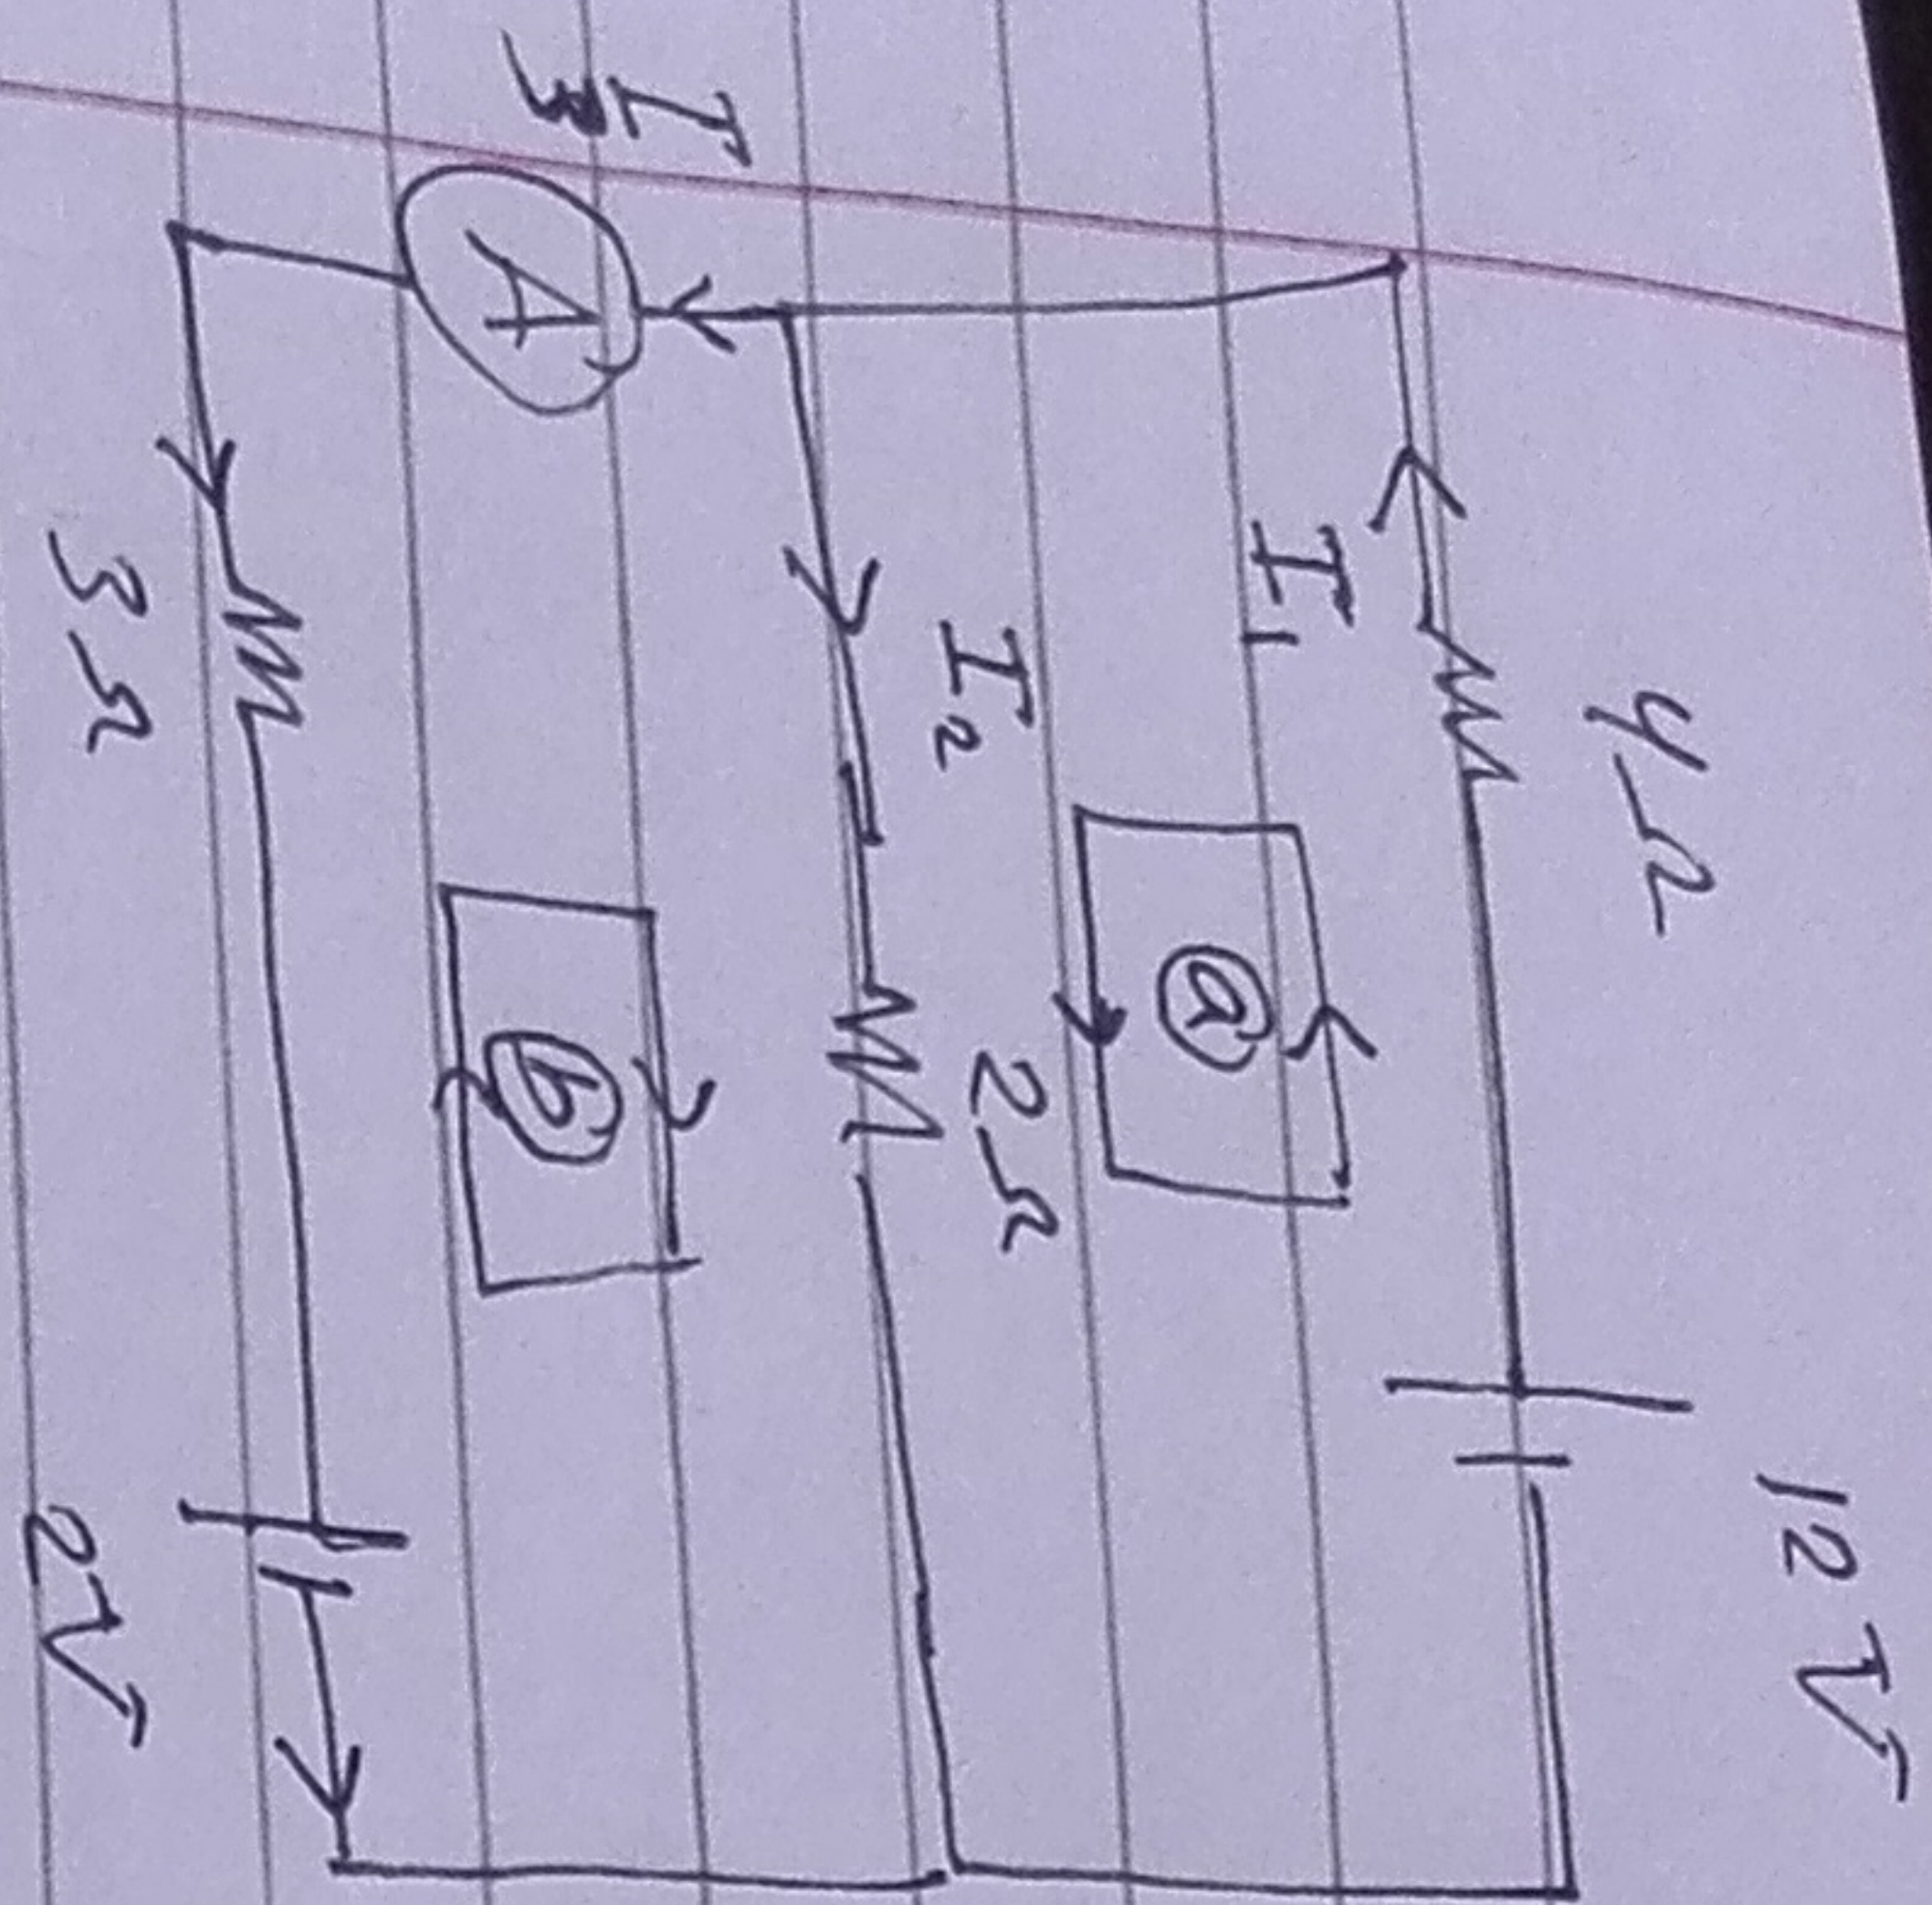 4Ω
12V
I1
ⓐ
I2
2Ω
I3
A
ⓑ
3Ω
2V